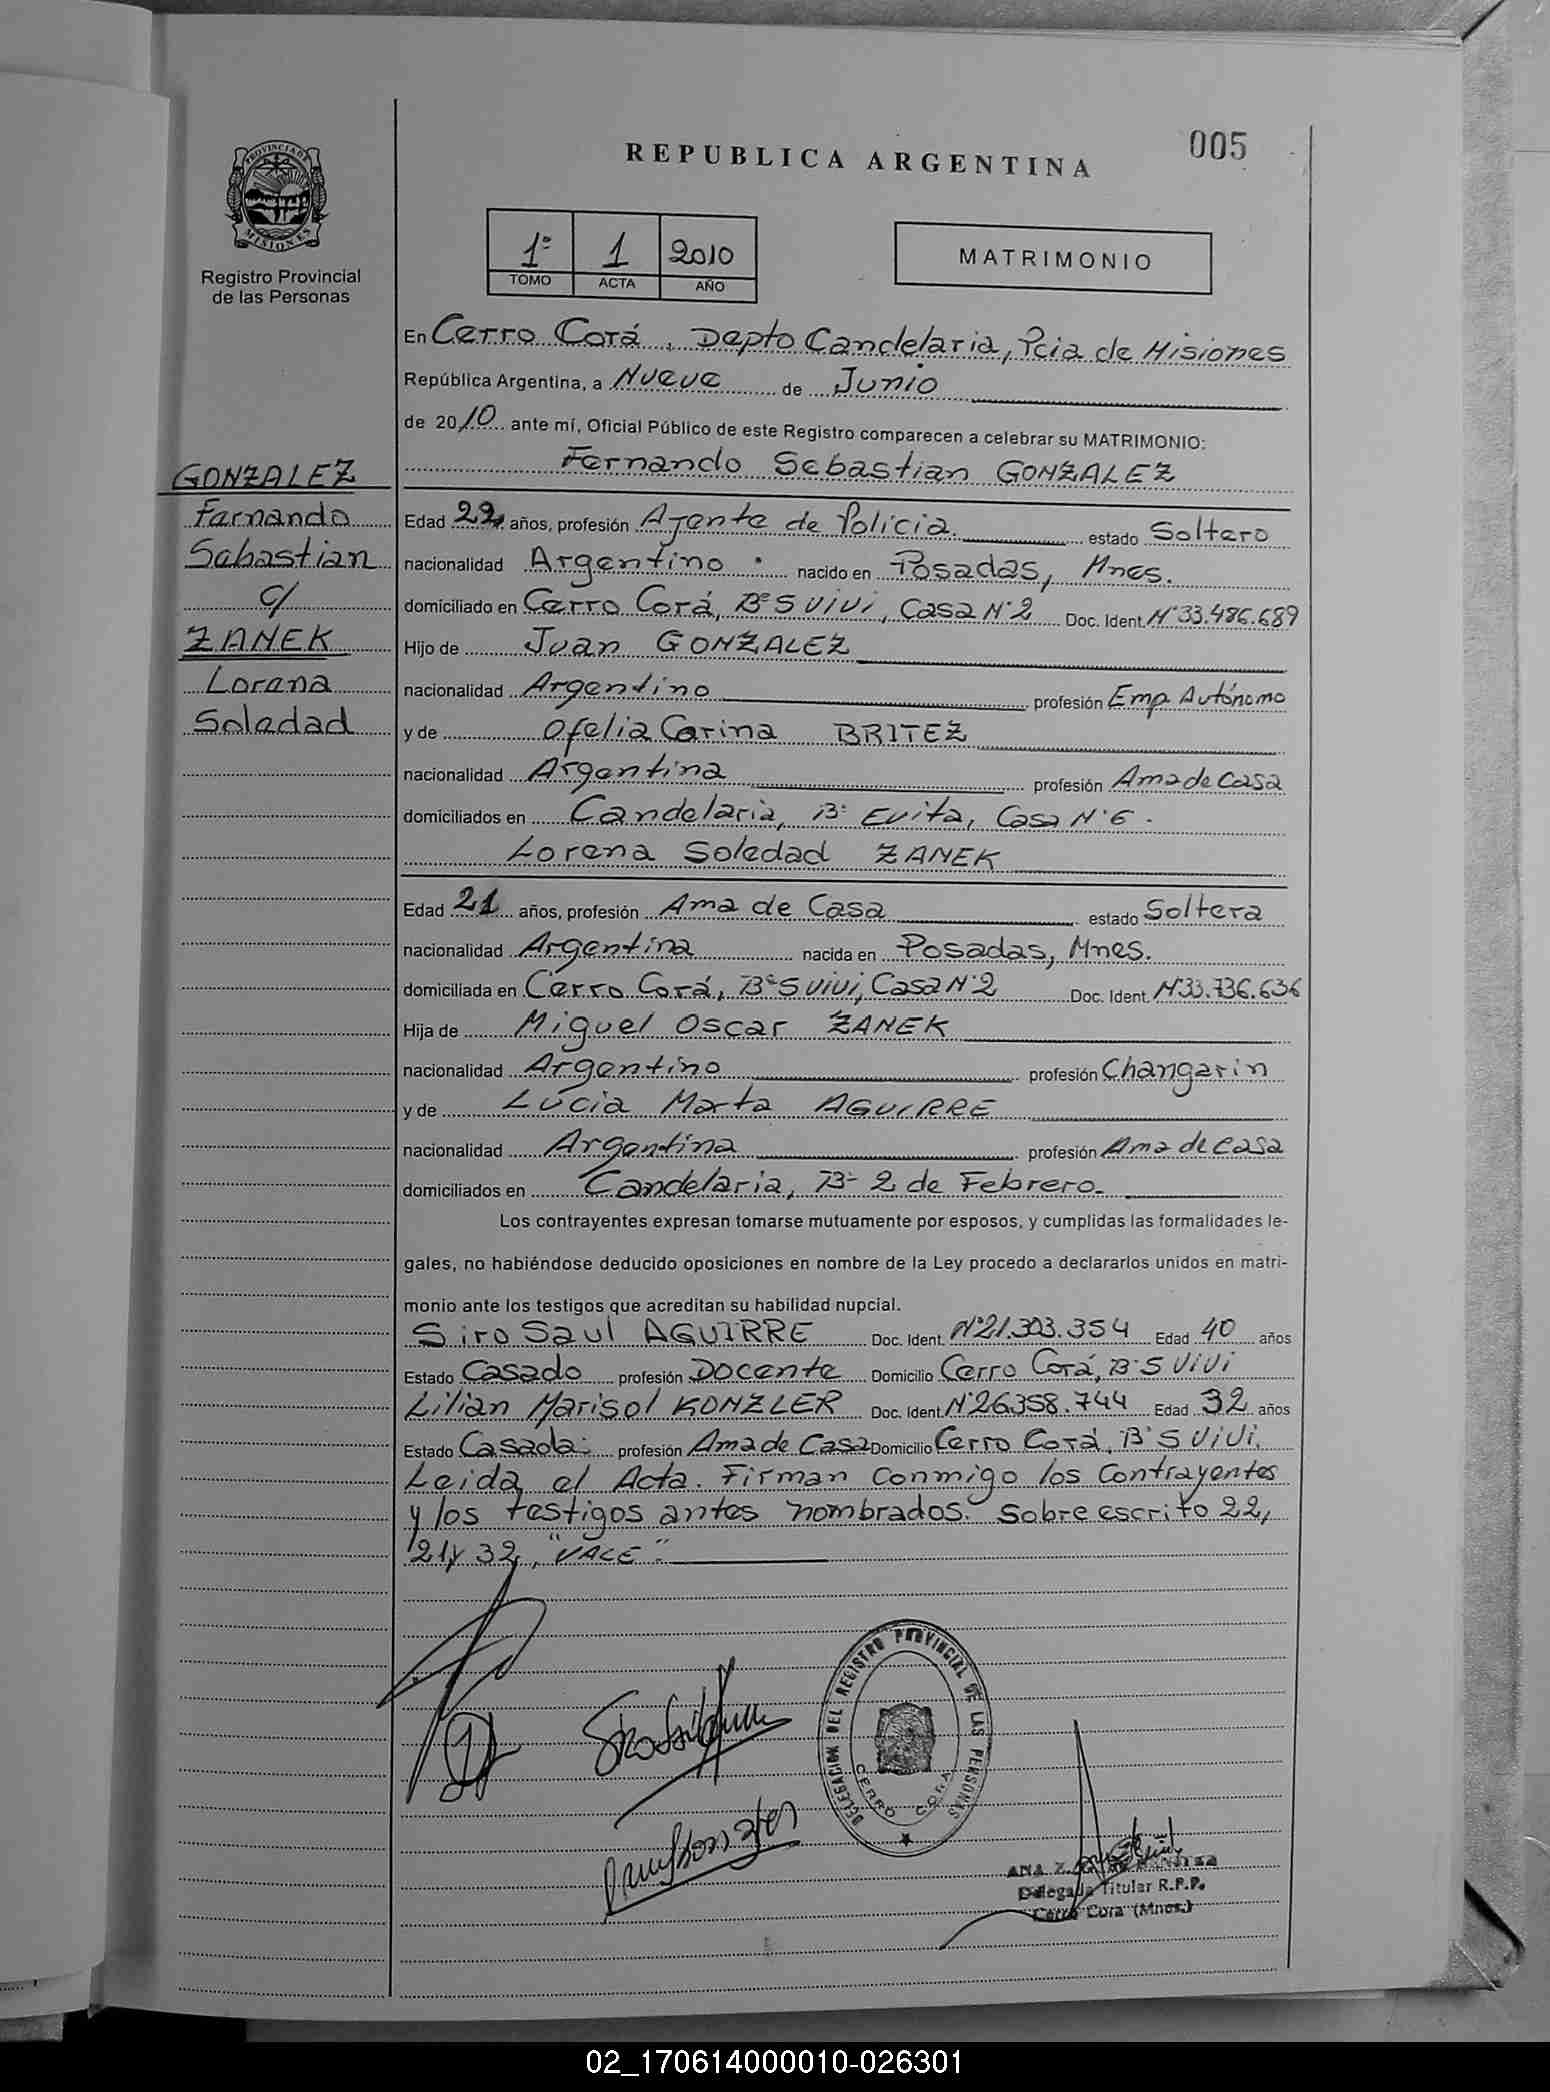 REPUBLICA ARGENTINA
005
PROVINCIA DE MISIONES
Registro Provincial
de las Personas
1º 1 2010
TOMO ACTA AÑO
MATRIMONIO
GONZALEZ
Fernando
Sebastian
c/
ZANEK
Lorena
Soledad
En Cerro Corá, Depto Candelaria, Pcia de Misiones
República Argentina, a Nueve de Junio
de 2010 ante mí, Oficial Público de este Registro comparecen a celebrar su MATRIMONIO:
Fernando Sebastian GONZALEZ
Edad 22 años, profesión Agente de Policia. estado Soltero
nacionalidad Argentino nacido en Posadas, Mnes.
domiciliado en Cerro Corá, Bº S Vivi, Casa Nº 2 Doc. Ident. Nº 33.486.689
Hijo de Juan GONZALEZ
nacionalidad Argentino profesión Emp. Autónomo
y de Ofelia Carina BRITEZ
nacionalidad Argentina profesión Ama de Casa
domiciliados en Candelaria, Bº Evita, Casa Nº 6.
Lorena Soledad ZANEK
Edad 21 años, profesión Ama de Casa estado Soltera
nacionalidad Argentina nacida en Posadas, Mnes.
domiciliada en Cerro Corá, Bº S Vivi, Casa Nº 2 Doc. Ident. Nº 33.736.636
Hija de Miguel Oscar ZANEK
nacionalidad Argentino profesión Changarin
y de Lucia Marta AGUIRRE
nacionalidad Argentina profesión Ama de Casa
domiciliados en Candelaria, Bº 2 de Febrero.
Los contrayentes expresan tomarse mutuamente por esposos, y cumplidas las formalidades le-
gales, no habiéndose deducido oposiciones en nombre de la Ley procedo a declararlos unidos en matri-
monio ante los testigos que acreditan su habilidad nupcial.
Siro Saul AGUIRRE Doc. Ident. Nº 21.303.354 Edad 40 años
Estado Casado profesión Docente Domicilio Cerro Corá, Bº S Vivi
Lilian Marisol KONZLER Doc. Ident. Nº 26.358.744 Edad 32 años
Estado Casada profesión Ama de Casa Domicilio Cerro Corá, Bº S Vivi.
Leida el Acta. Firman conmigo los Contrayentes
y los testigos antes nombrados. Sobre escrito 22,
21 y 32, "VALE".
DELEGACION DEL REGISTRO PROVINCIAL DE LAS PERSONAS
CERRO CORA
ANA Z.
Delegada Titular R.P.P.
Cerro Cora (Mnes.)
02_170614000010-026301